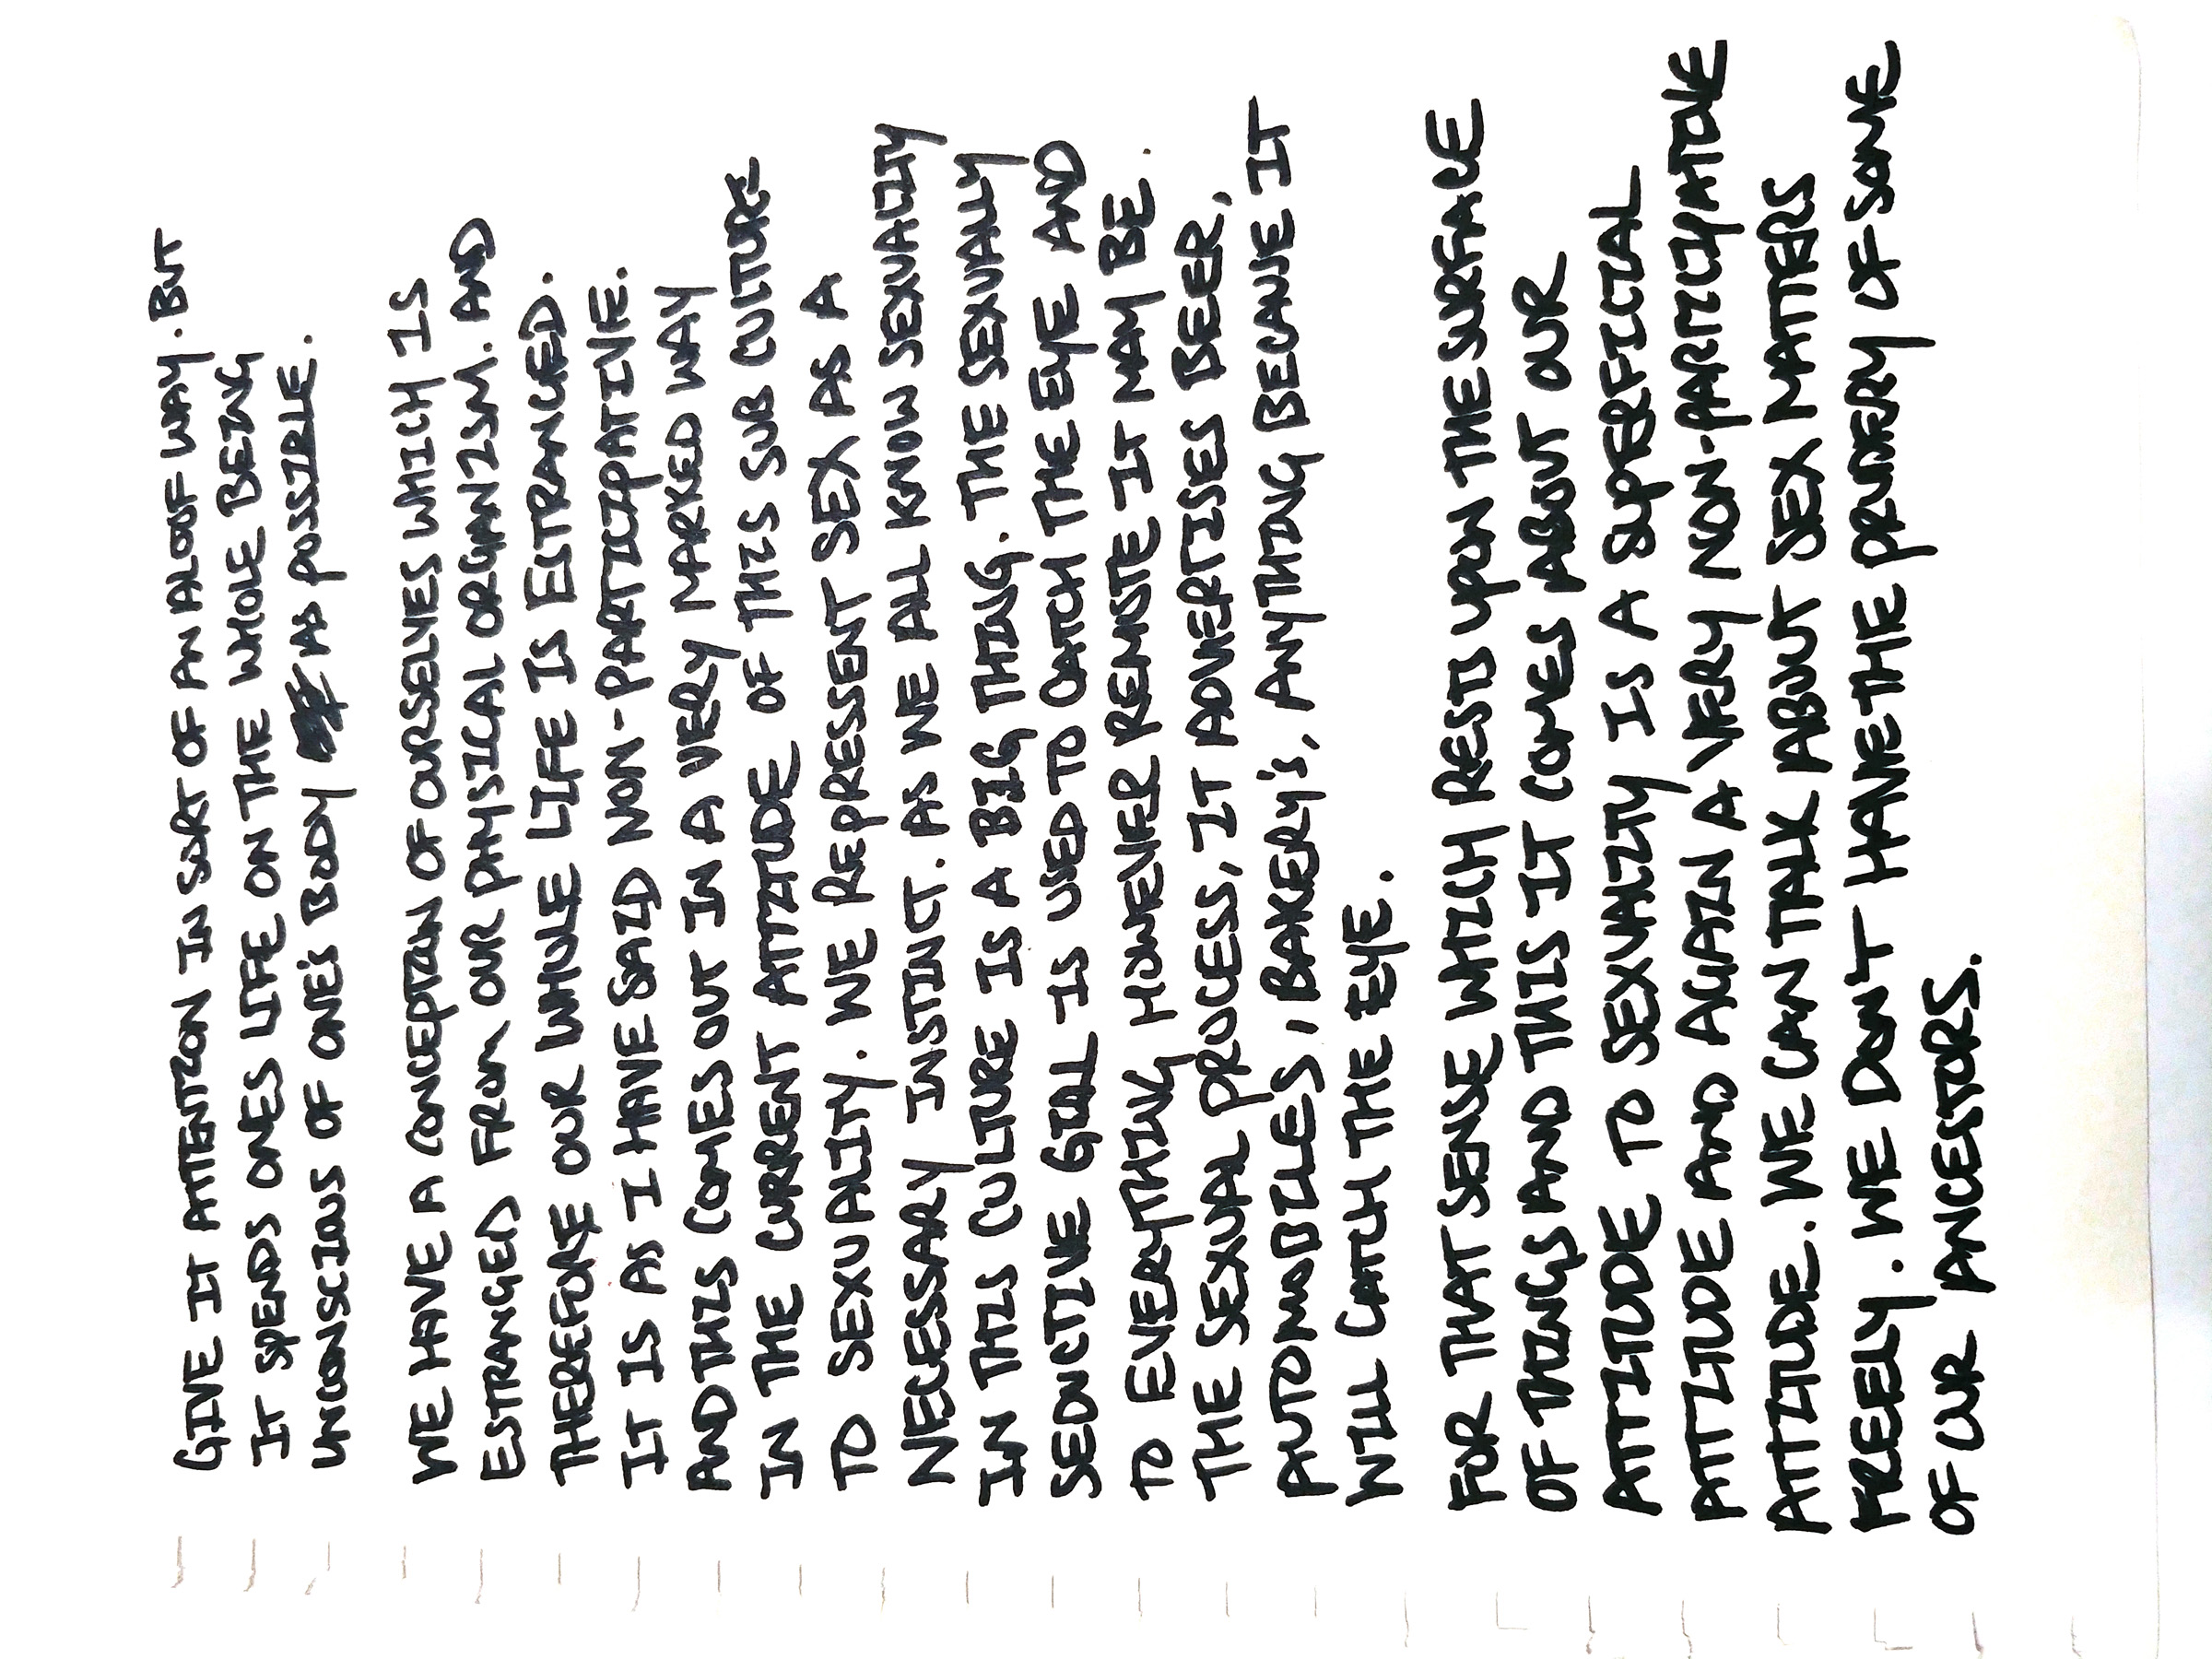 GIVE IT ATTENTION IN SORT OF AN ALOOF WAY. BUT
IT SPENDS ONES LIFE ON THE WHOLE BEING
UNCONSCIOUS OF ONE'S BODY AS POSSIBLE.
WE HAVE A CONCEPTION OF OURSELVES WHICH IS
ESTRANGED FROM OUR PHYSICAL ORGANISM. AND
THEREFORE OUR WHOLE LIFE IS ESTRANGED.
IT IS AS I HAVE SAID NON-PARTICIPATIVE.
AND THIS COMES OUT IN A VERY MARKED WAY
IN THE CURRENT ATTITUDE OF THIS SUB CULTURE
TO SEXUALITY. WE REPRESSENT SEX AS A
NECESSARY INSTINCT. AS WE ALL KNOW SEXUALITY
IN THIS CULTURE IS A BIG THING. THE SEXUALLY
SEDUCTIVE GIRL IS USED TO CATCH THE EYE AND
TO EVERYTHING HOWEVER REMOTE IT MAY BE.
THE SEXUAL PROCESS, IT ADVERTISES BEER,
AUTOMOBILES, BAKERY'S, ANYTHING BECAUSE IT
WILL CATCH THE EYE.
FOR THAT SENSE WHICH RESTS UPON THE SURFACE
OF THINGS AND THIS IT COMES ABOUT OUR
ATTITUDE TO SEXUALITY IS A SUPERFICIAL
ATTITUDE AND AGAIN A VERY NON-PARTICIPATIVE
ATTITUDE. WE CAN TALK ABOUT SEX MATTERS
FREELY. WE DON'T HAVE THE PRUDERY OF SOME
OF OUR ANCESTORS.